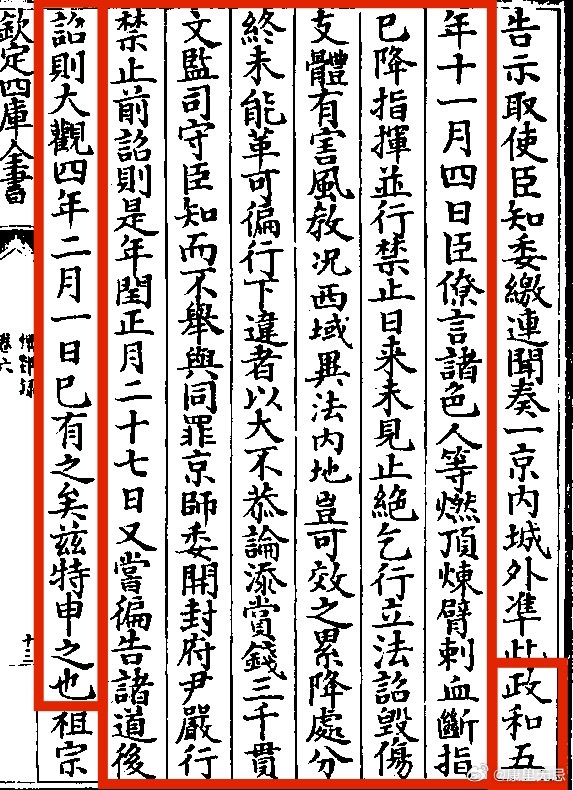 告示取使臣知委繳連聞奏一京内城外凖此政和五
年十一月四日臣僚言諸色人等燃頂煉臂刺血斷指
已降指揮並行禁止日来未見止絶乞行立法詔毀傷
支體有害風教況西域異法内地豈可效之累降處分
終未能革可徧行下違者以大不恭論添賞錢三千貫
文監司守臣知而不舉與同罪京師委開封府尹嚴行
禁止前詔則是年閏正月二十七日又嘗徧告諸道後
詔則大觀四年二月一日已有之矣兹特申之也祖宗
欽定四庫全書
卷六
十三